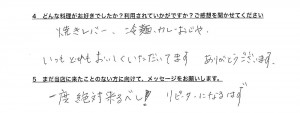 4 どんな料理がお好きでしたか？利用されていかがですか？ご感想を聞かせてください
焼きレバー、冷麺、カレーおじや
いつもとてもおいしくいただいてます ありがとうございます。
5 まだ当店に来たことのない方に向けて、メッセージをお願いします。
一度絶対来るべし!! リピーターになるはず